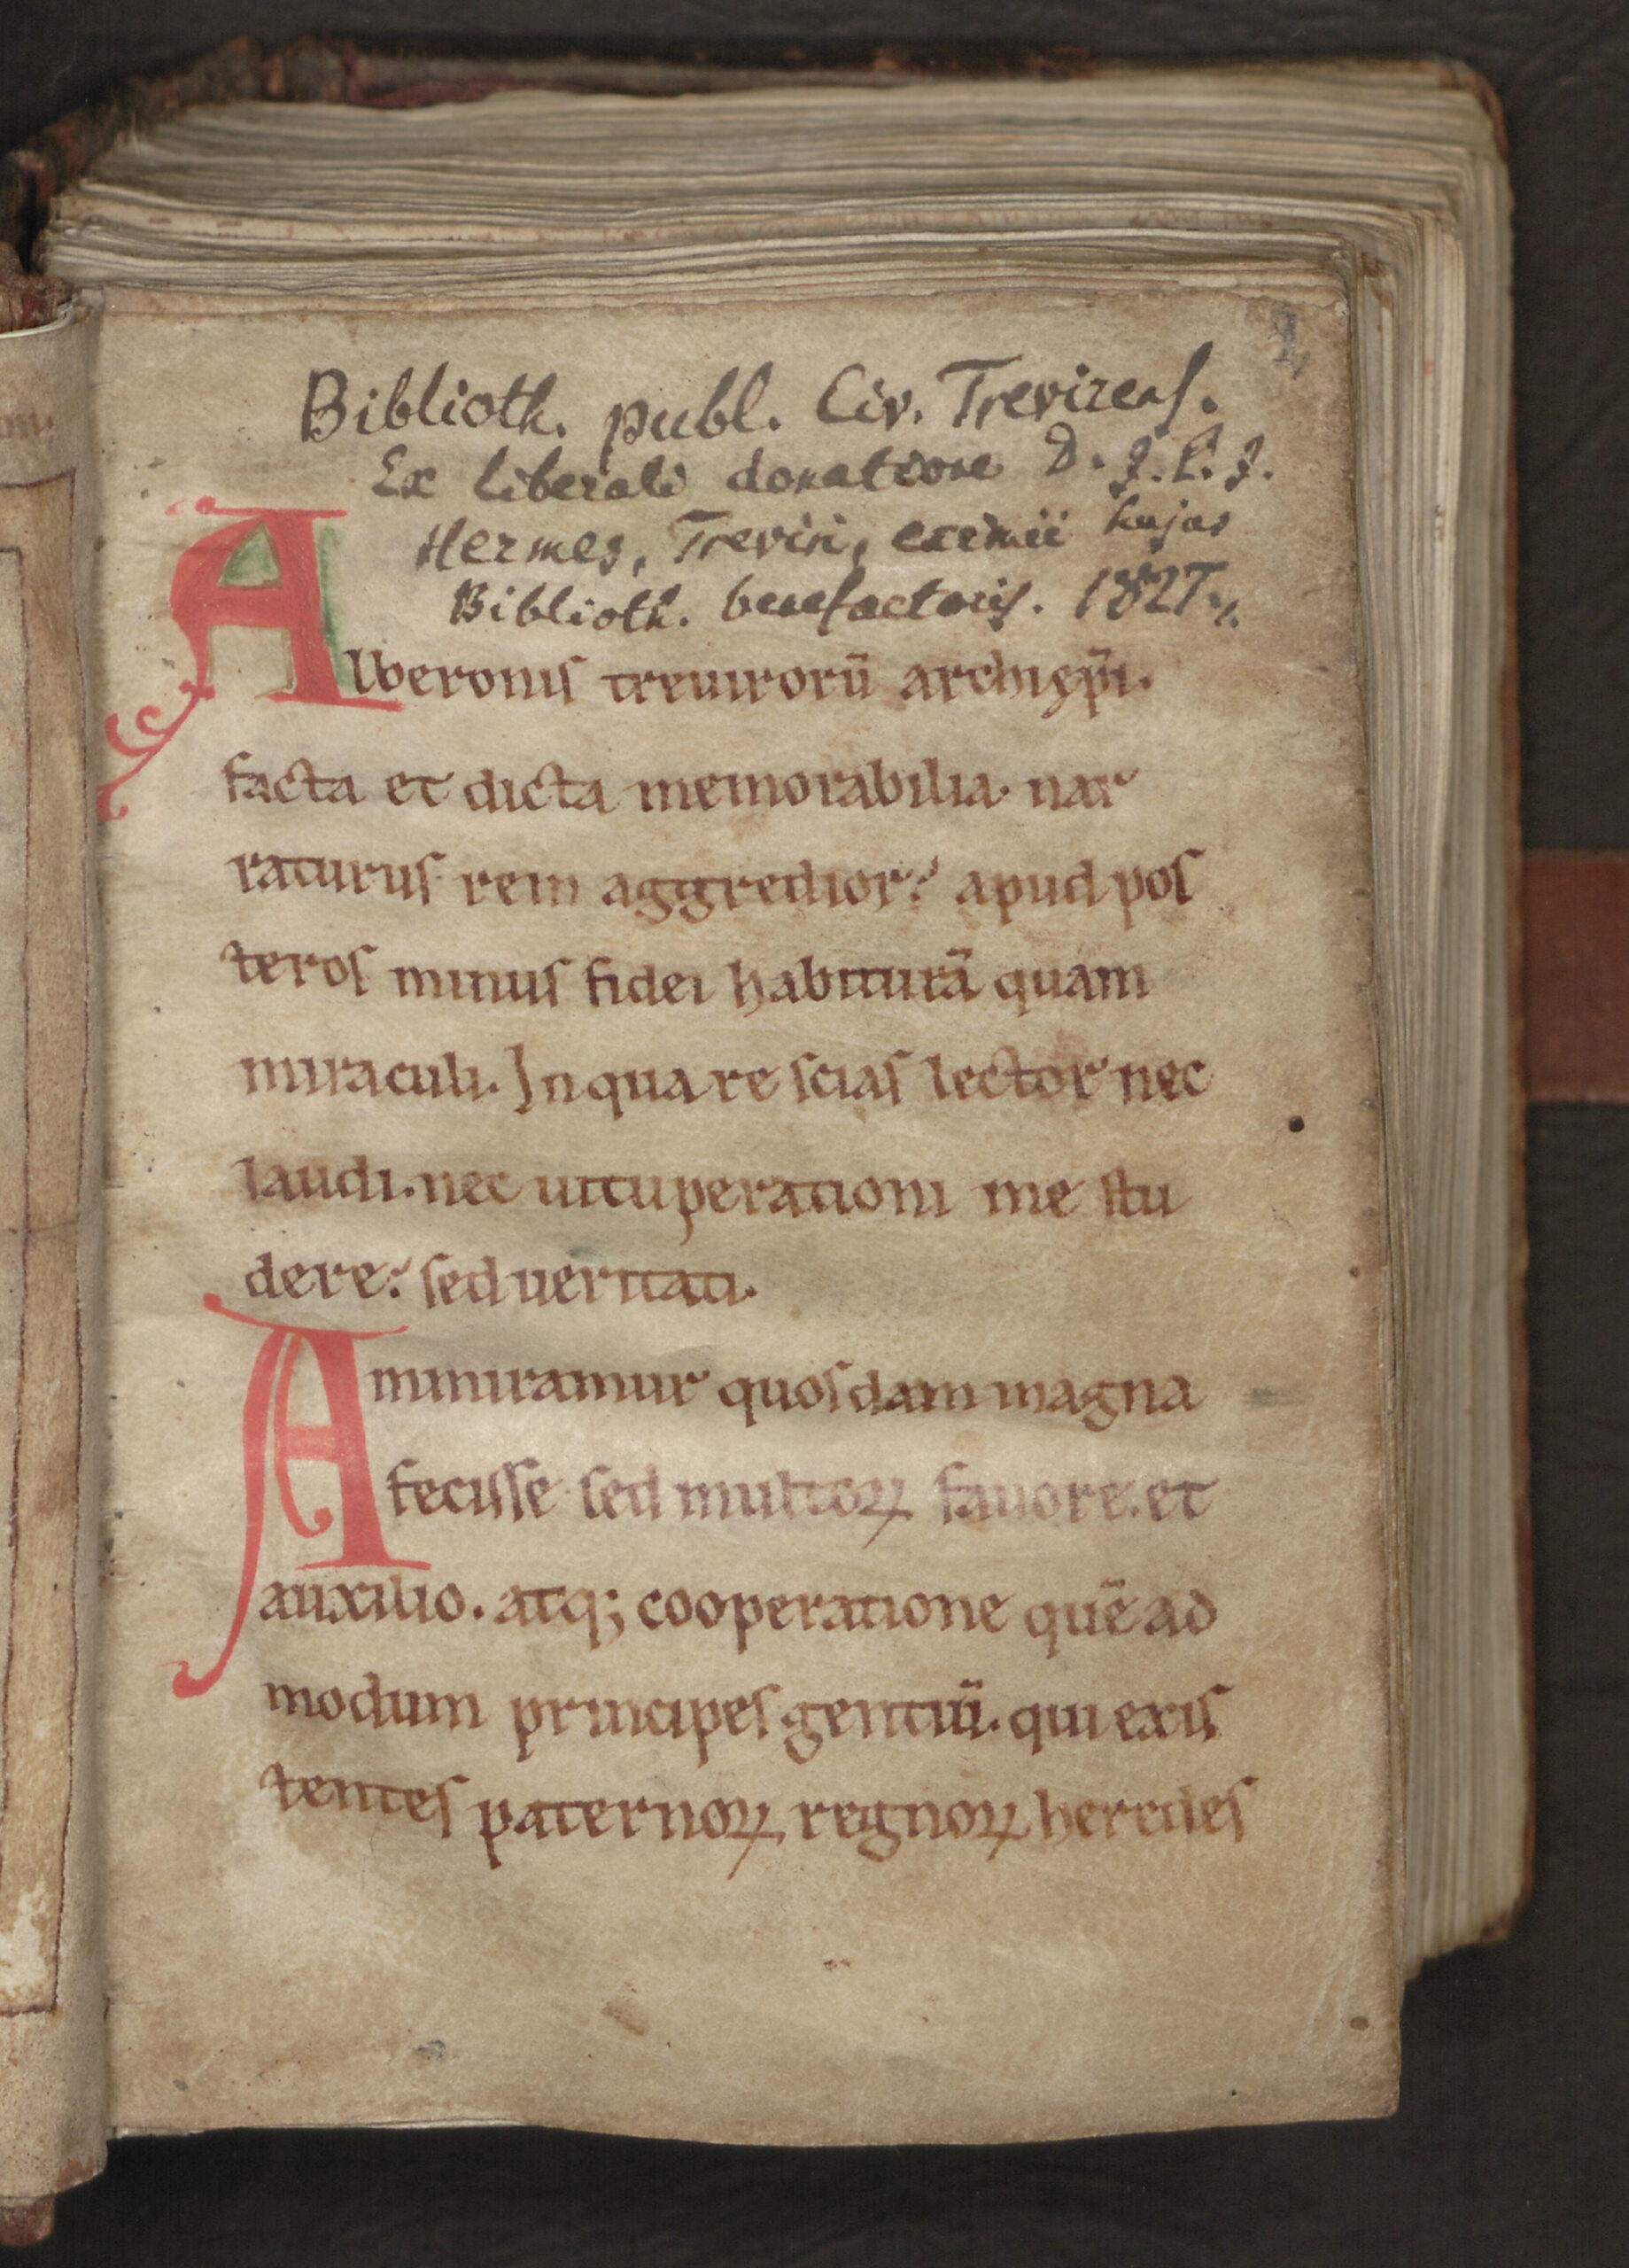 2
Biblioth. publ. Civ. Trevirens.
Ex liberali donatione D. J. P. J.
Hermes, Treviri, eximii hujus
Biblioth. benefactoris. 1827.
Alberonis treuiroru̅ archiep̅i.
facta et dicta memorabilia. nar
raturus rem aggredior? apud pos
teros minus fidei habitura̅ quam
miraculi. In qua re scias lector nec
laudi. nec uituperationi me stu
dere? sed ueritati.
Ammiramur quosdam magna
fecisse sed multoꝝ fauore. et
auxilio. atq; cooperatione que̅ad
modum principes gentiu̅. qui exis
tentes paternoꝝ regnoꝝ heredes